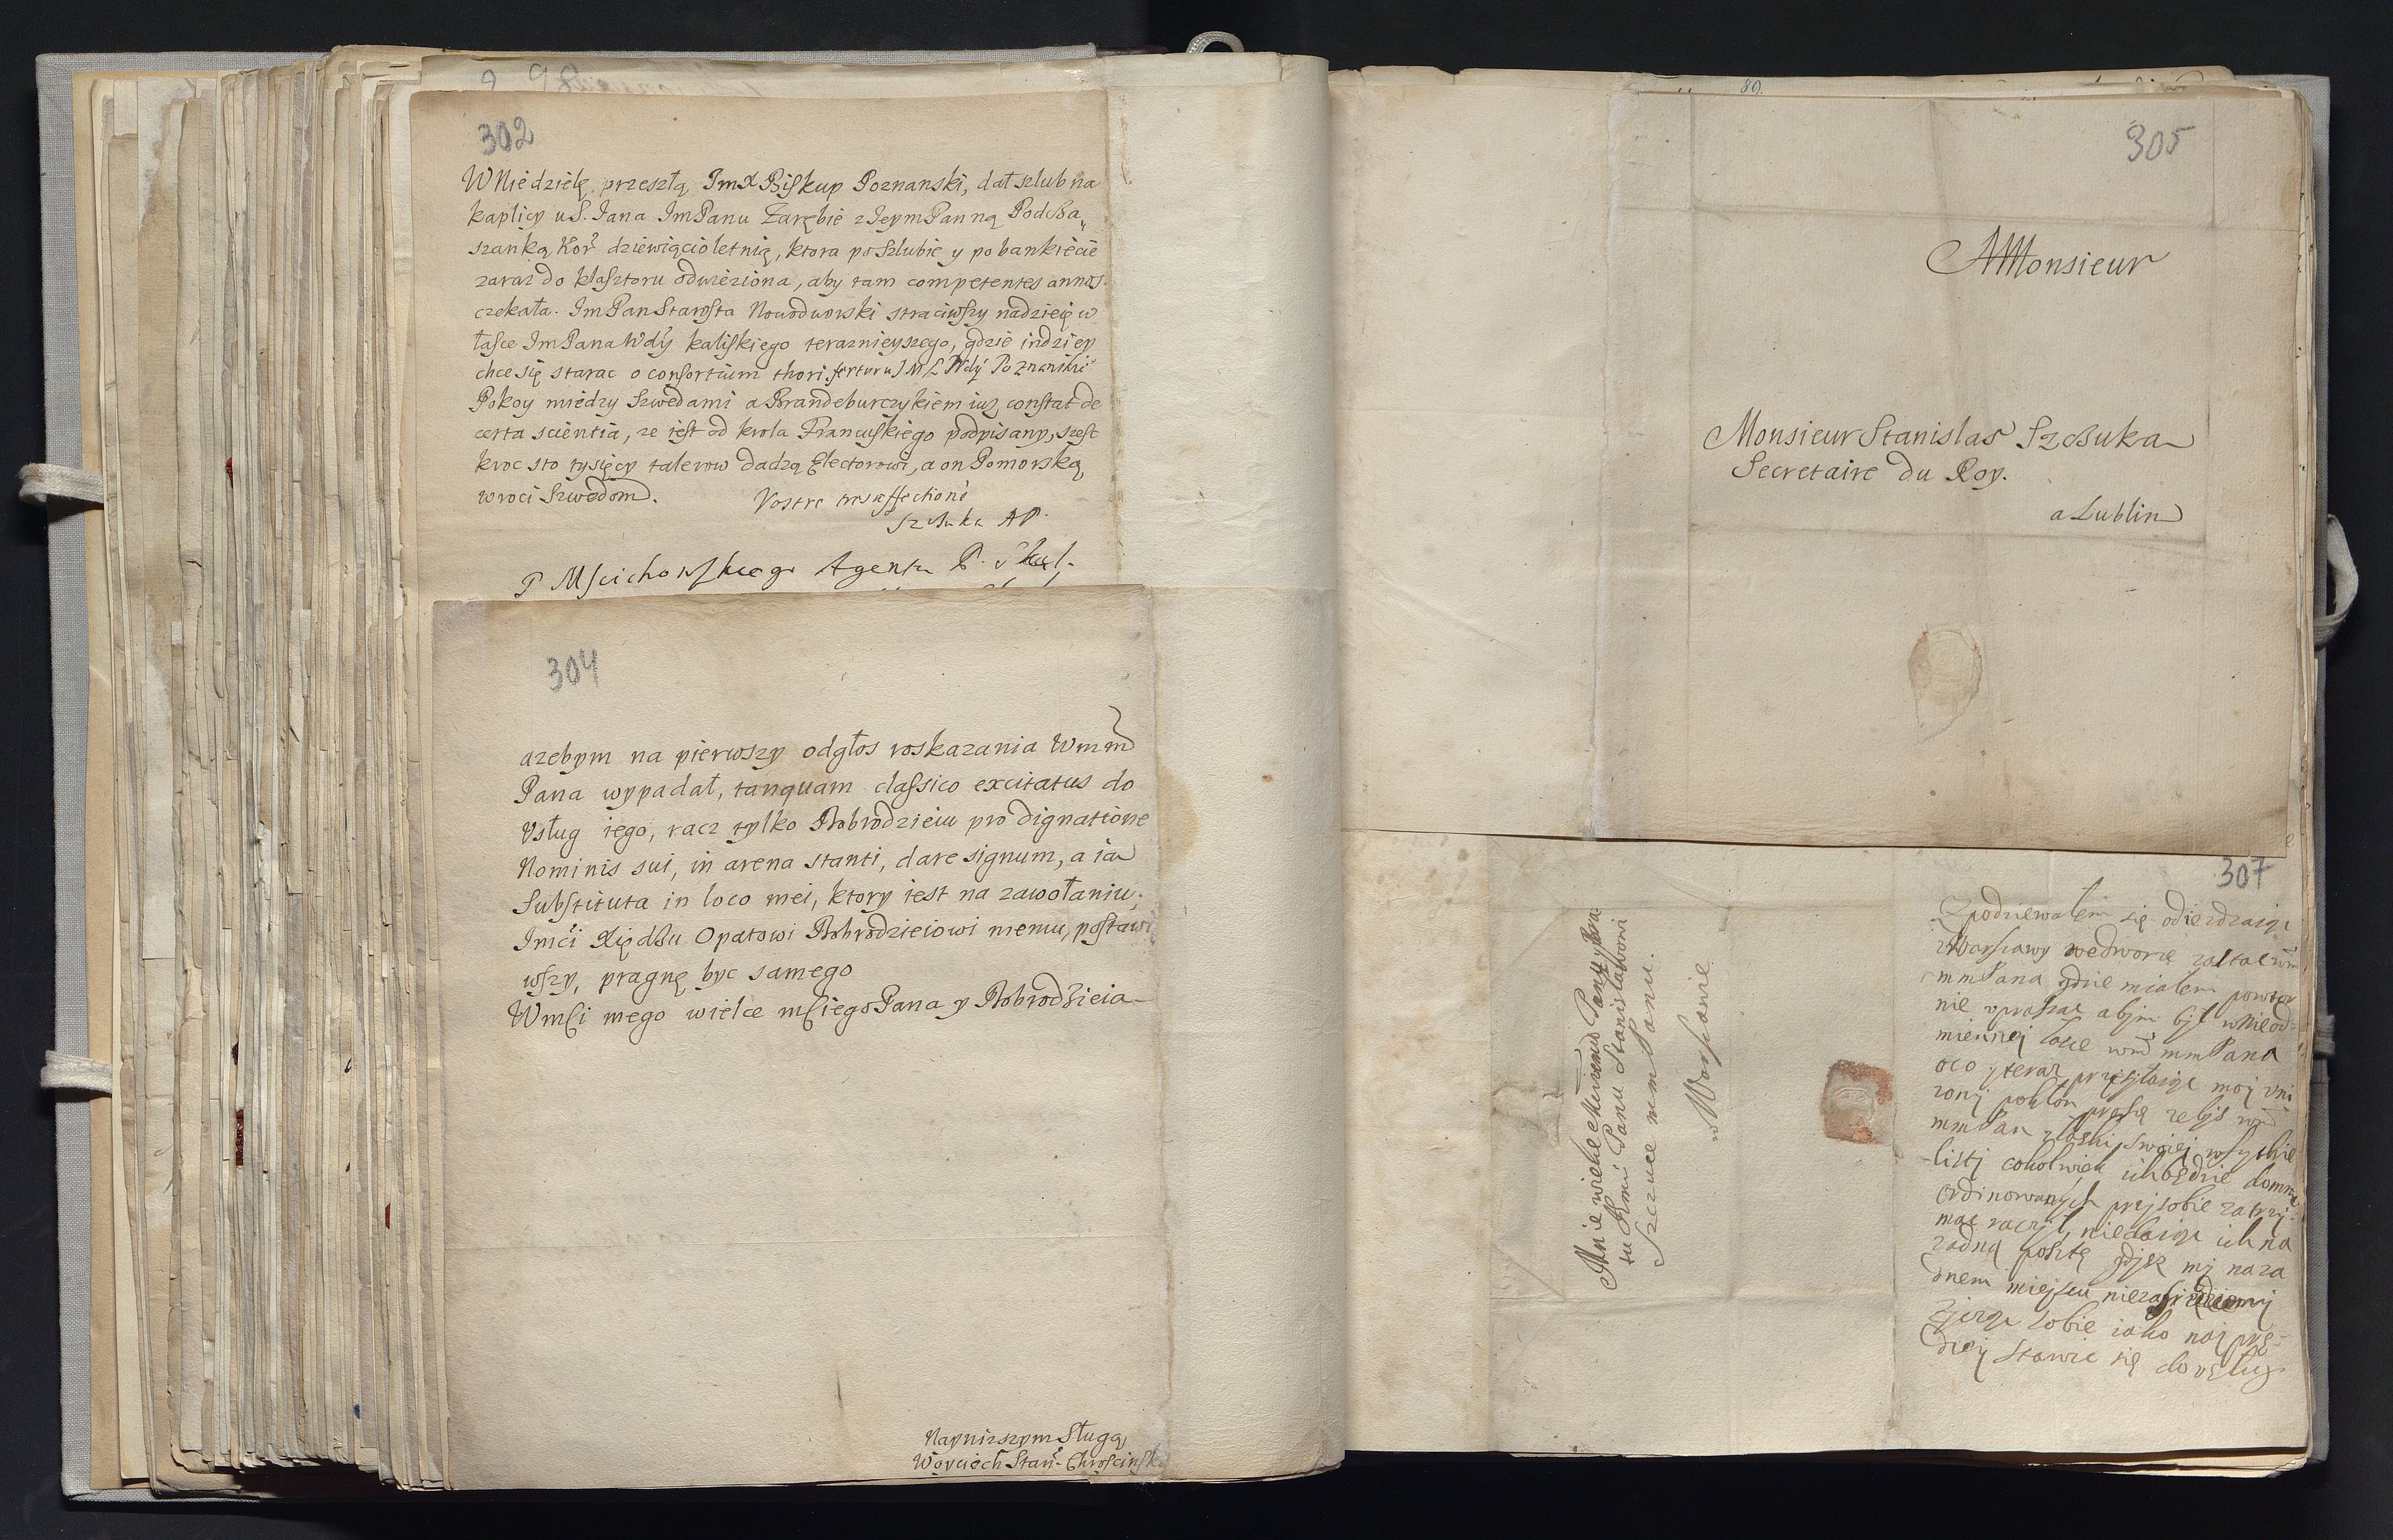 302
W Niedzielę przeszłą Jm X Biskup Poznanski, dał szlub na
kaplicy u S. Jana Jm Panu Zarębie z Jeym Panną Podcza„
szanką Kor. dziewiącioletnią, ktora po szlubie y po bankiecie
zaraz do klasztoru odwieziona, aby tam competentes annos
czekała. Jm Pan Starosta Nowodworski straciwszy nadzieię w
łasce Jm Pana Wdy kaliskiego teraznieyszego, gdzie indziey
chce się starac o consortium thori, fertur u J M P Wdy Poznanski
Pokoy miedzy Szwedami a Brandeburczykiem iuz constat de
certa scientia, ze iest od krola Francuskiego podpisany, szesc
kroc sto tysięcy talerow dadzą Electorowi, a on Pomorską
wroci Szwedom.
Vostre tres affectioné
Szczuka
P Mscichowskiego Agenta P.
304
azebym na pierwszy odgłos roskazania Wmm
Pana wypadał, tanquam classico excitatus do
Vsług iego, racz tylko Dobrodzieiu pro dignatione
Nominis sui, in arena stanti, dare signum, a ia
Substituta in loco mei, ktory iest na zawołaniu;
Jmći Xiędzu Opatowi Dobrodzieiowi memu, postawi
wszy, pragnę byc samego
Wmści mego wielce mściego Pana y Dobrodzieia
Nayniszszym Sługą,
Woyciech Stan. Chrościnsk
89.
305
A Monsieur
Monsieur Stanislas Szczuka
Secretaire du Roy.
a Lublin
307
Mnie wielce Panu y Bra
tu Panu Stanisławowi
Szczuce mm Panu.
w Warszawie
Spodziewałem się odiezdzaiąc
z Warszawy we dworze zastac wm
mm Pana gdzie miałem powtor
nie vpraszac abym był w nieod=
mienney łasce wm mm Pana
oco y teraz przesyłaiąc moy vni
zony pokłon proszę zebys wm
mm Pan z łaski swoiey wszytkie
listy cokolwiek ich będzie do mnie
ordinowanych przy sobie zatrzy=
mac raczył, nie daiąc ich na
zadną posztę gdysz my na za
dnem mieyscu
zycząc sobie iako nay prę=
dzey stawic się do vsług